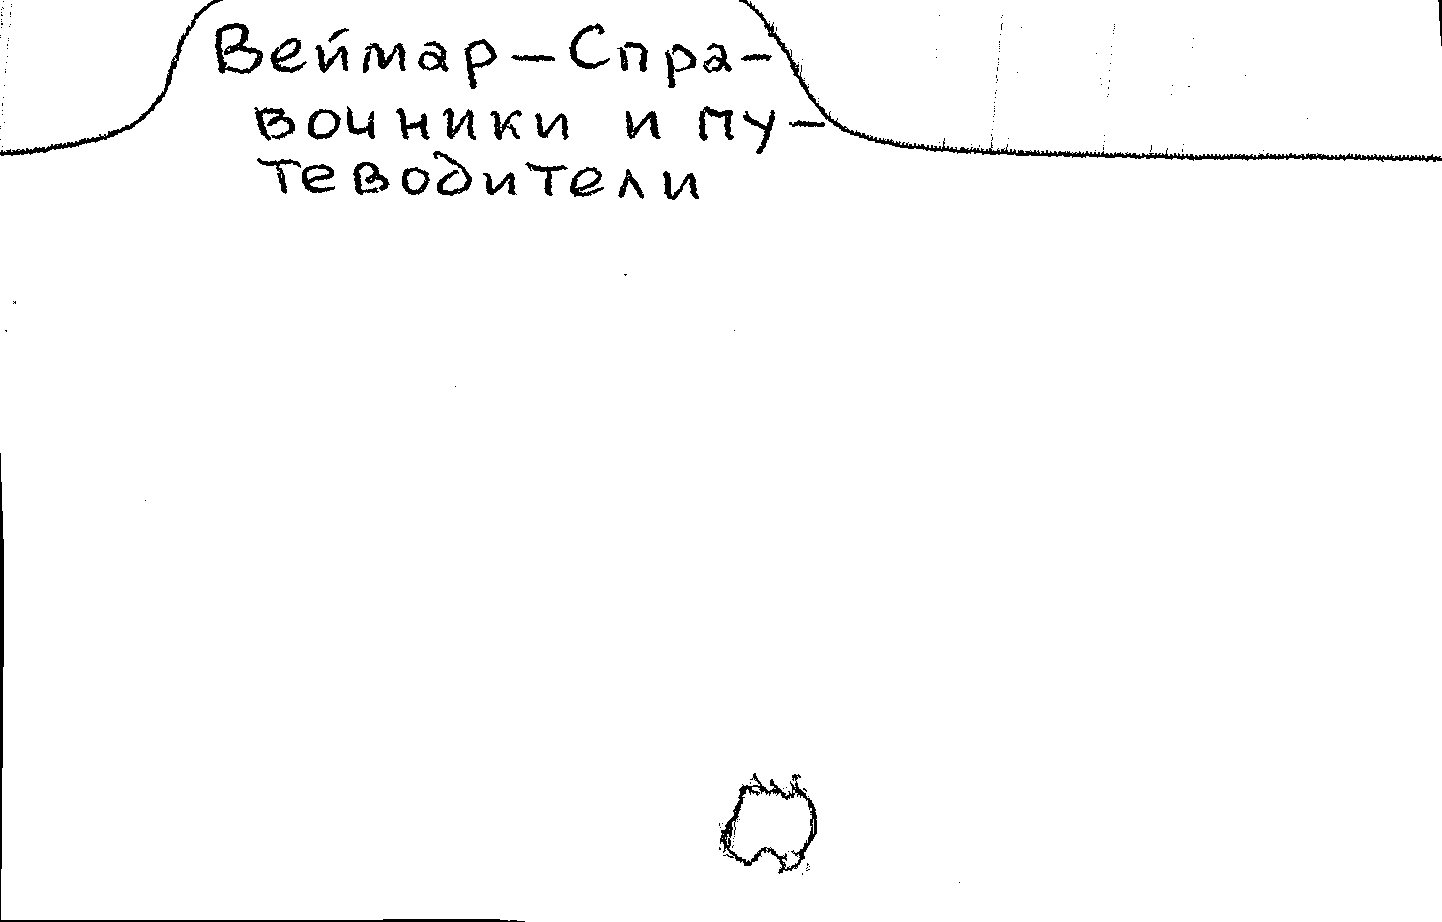 Веймар-Спра-
вочники и пу-
теводители